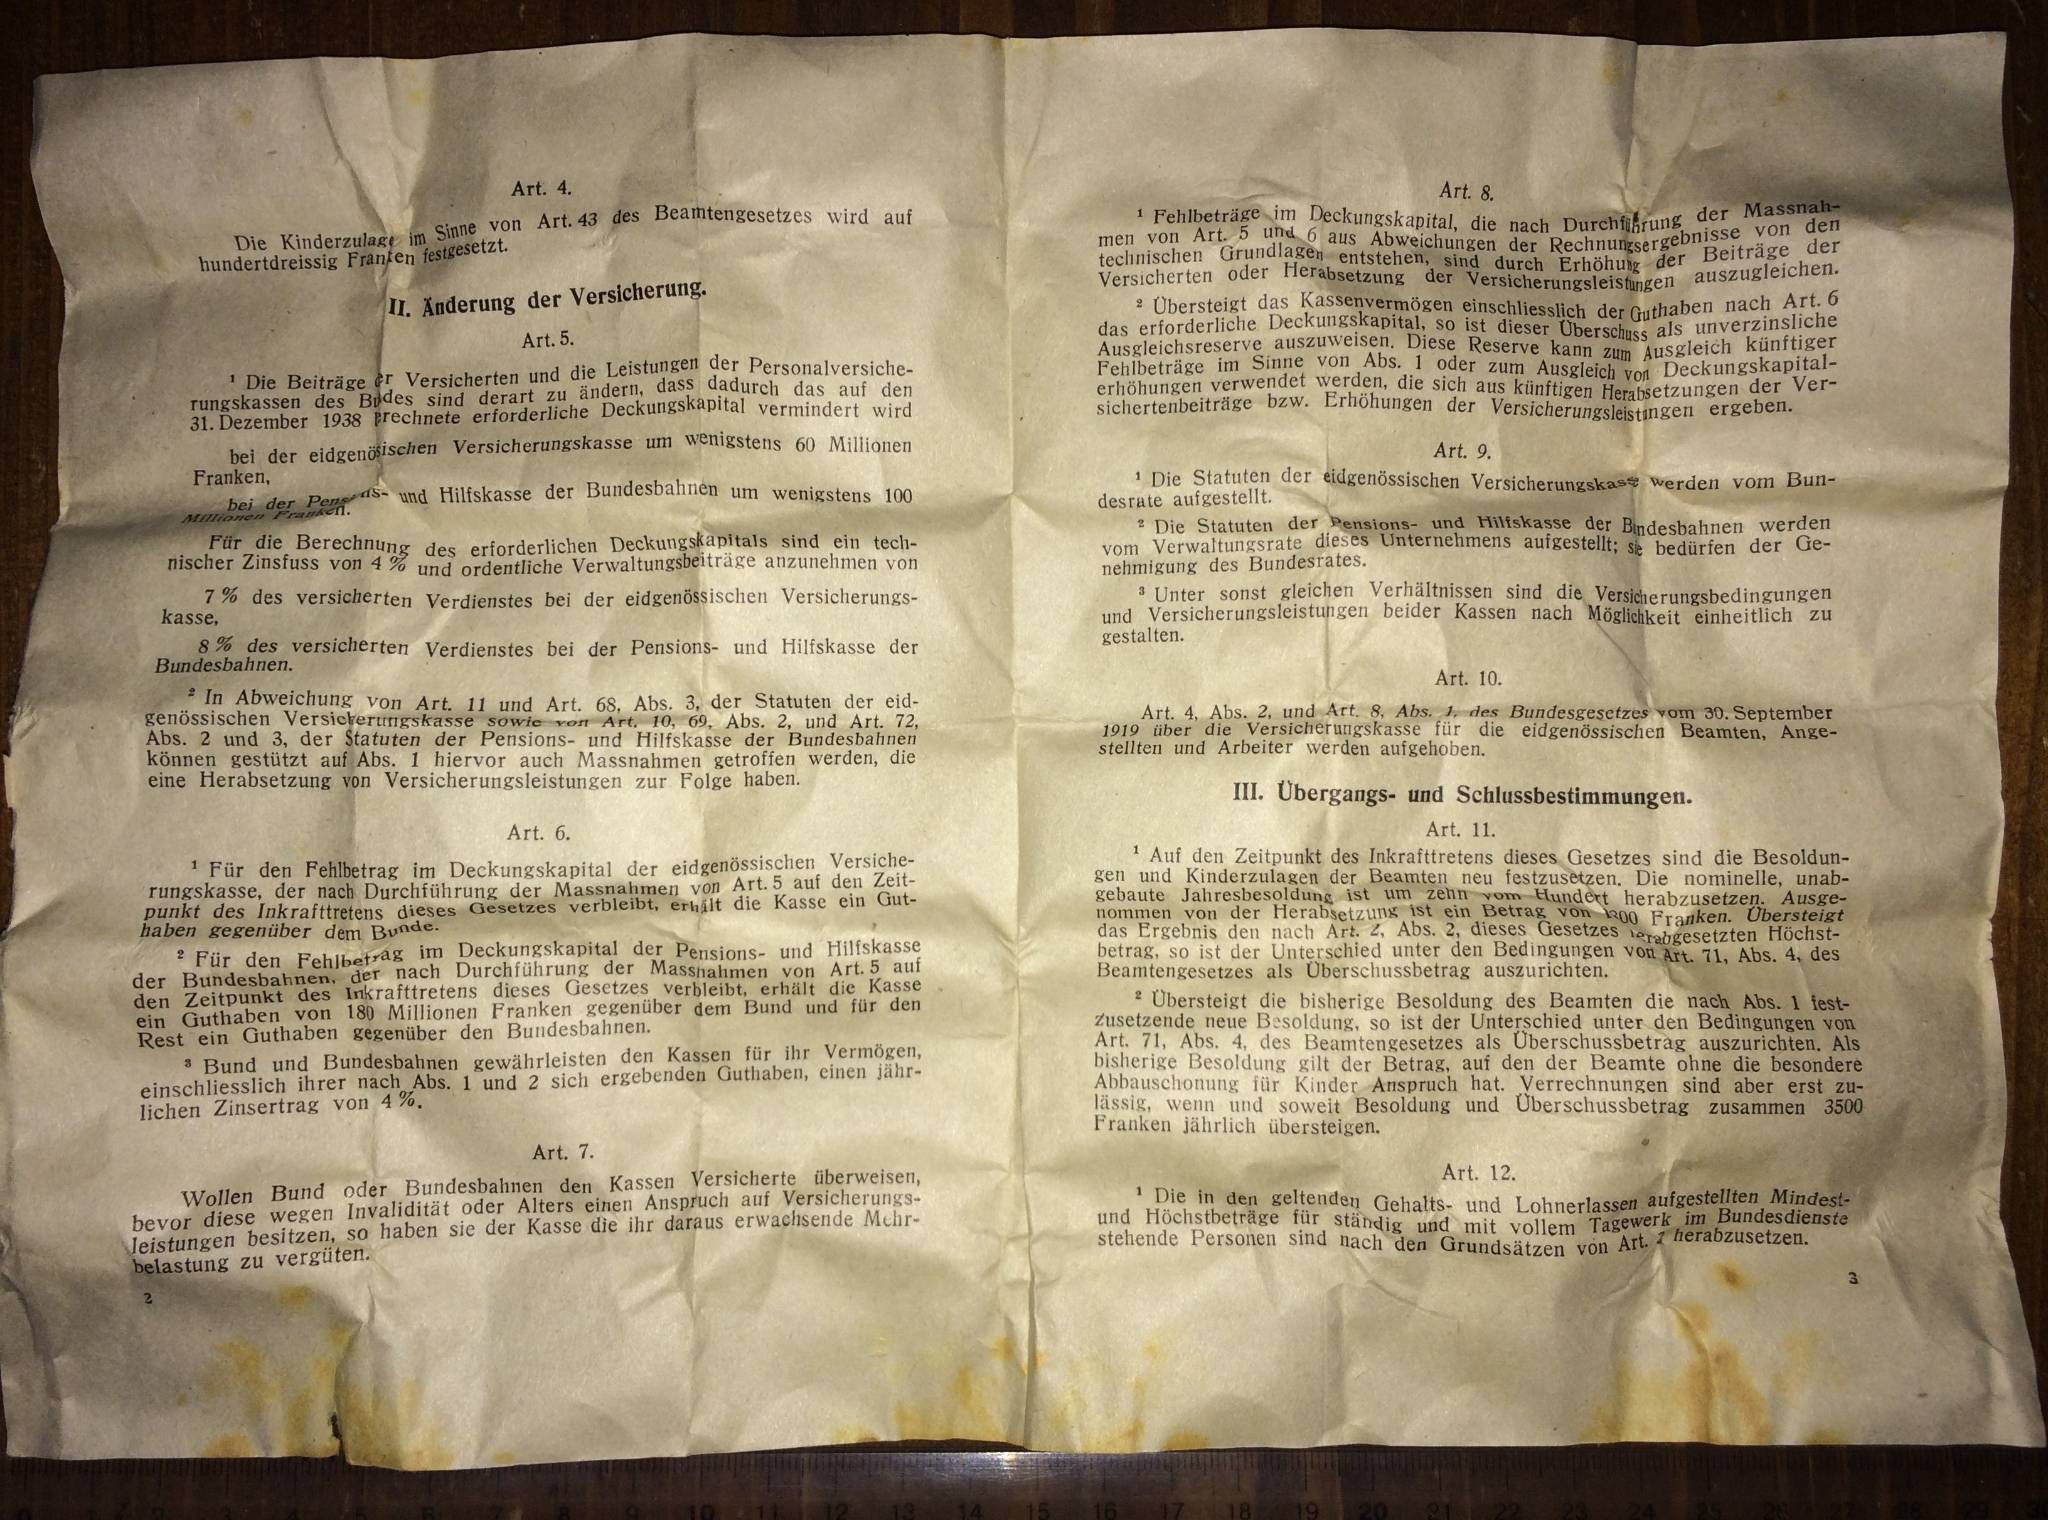 Art. 4.
Die Kinderzulage im Sinne von Art. 43 des Beamtengesetzes wird auf
hundertdreissig Franken festgesetzt.
II. Änderung der Versicherung.
Art. 5.
¹ Die Beiträge der Versicherten und die Leistungen der Personalversiche-
rungskassen des Bundes sind derart zu ändern, dass dadurch das auf den
31. Dezember 1938 errechnete erforderliche Deckungskapital vermindert wird
bei der eidgenössischen Versicherungskasse um wenigstens 60 Millionen
Franken,
bei der Pensions- und Hilfskasse der Bundesbahnen um wenigstens 100
Millionen Franken.
Für die Berechnung des erforderlichen Deckungskapitals sind ein tech-
nischer Zinsfuss von 4 % und ordentliche Verwaltungsbeiträge anzunehmen von
7 % des versicherten Verdienstes bei der eidgenössischen Versicherungs-
kasse,
8 % des versicherten Verdienstes bei der Pensions- und Hilfskasse der
Bundesbahnen.
² In Abweichung von Art. 11 und Art. 68, Abs. 3, der Statuten der eid-
genössischen Versicherungskasse sowie von Art. 10, 69, Abs. 2, und Art. 72,
Abs. 2 und 3, der Statuten der Pensions- und Hilfskasse der Bundesbahnen
können gestützt auf Abs. 1 hiervor auch Massnahmen getroffen werden, die
eine Herabsetzung von Versicherungsleistungen zur Folge haben.
Art. 6.
¹ Für den Fehlbetrag im Deckungskapital der eidgenössischen Versiche-
rungskasse, der nach Durchführung der Massnahmen von Art. 5 auf den Zeit-
punkt des Inkrafttretens dieses Gesetzes verbleibt, erhält die Kasse ein Gut-
haben gegenüber dem Bunde.
² Für den Fehlbetrag im Deckungskapital der Pensions- und Hilfskasse
der Bundesbahnen, der nach Durchführung der Massnahmen von Art. 5 auf
den Zeitpunkt des Inkrafttretens dieses Gesetzes verbleibt, erhält die Kasse
ein Guthaben von 180 Millionen Franken gegenüber dem Bund und für den
Rest ein Guthaben gegenüber den Bundesbahnen.
³ Bund und Bundesbahnen gewährleisten den Kassen für ihr Vermögen,
einschliesslich ihrer nach Abs. 1 und 2 sich ergebenden Guthaben, einen jähr-
lichen Zinsertrag von 4 %.
Art. 7.
Wollen Bund oder Bundesbahnen den Kassen Versicherte überweisen,
bevor diese wegen Invalidität oder Alters einen Anspruch auf Versicherungs-
leistungen besitzen, so haben sie der Kasse die ihr daraus erwachsende Mehr-
belastung zu vergüten.
2
Art. 8.
¹ Fehlbeträge im Deckungskapital, die nach Durchführung der Massnah-
men von Art. 5 und 6 aus Abweichungen der Rechnungsergebnisse von den
technischen Grundlagen entstehen, sind durch Erhöhung der Beiträge der
Versicherten oder Herabsetzung der Versicherungsleistungen auszugleichen.
² Übersteigt das Kassenvermögen einschliesslich der Guthaben nach Art. 6
das erforderliche Deckungskapital, so ist dieser Überschuss als unverzinsliche
Ausgleichsreserve auszuweisen. Diese Reserve kann zum Ausgleich künftiger
Fehlbeträge im Sinne von Abs. 1 oder zum Ausgleich von Deckungskapital-
erhöhungen verwendet werden, die sich aus künftigen Herabsetzungen der Ver-
sichertenbeiträge bzw. Erhöhungen der Versicherungsleistungen ergeben.
Art. 9.
¹ Die Statuten der eidgenössischen Versicherungskasse werden vom Bun-
desrate aufgestellt.
² Die Statuten der Pensions- und Hilfskasse der Bundesbahnen werden
vom Verwaltungsrate dieses Unternehmens aufgestellt; sie bedürfen der Ge-
nehmigung des Bundesrates.
³ Unter sonst gleichen Verhältnissen sind die Versicherungsbedingungen
und Versicherungsleistungen beider Kassen nach Möglichkeit einheitlich zu
gestalten.
Art. 10.
Art. 4, Abs. 2, und Art. 8, Abs. 1, des Bundesgesetzes vom 30. September
1919 über die Versicherungskasse für die eidgenössischen Beamten, Ange-
stellten und Arbeiter werden aufgehoben.
III. Übergangs- und Schlussbestimmungen.
Art. 11.
¹ Auf den Zeitpunkt des Inkrafttretens dieses Gesetzes sind die Besoldun-
gen und Kinderzulagen der Beamten neu festzusetzen. Die nominelle, unab-
gebaute Jahresbesoldung ist um zehn vom Hundert herabzusetzen. Ausge-
nommen von der Herabsetzung ist ein Betrag von Franken. Übersteigt
das Ergebnis den nach Art. 2, Abs. 2, dieses Gesetzes herabgesetzten Höchst-
betrag, so ist der Unterschied unter den Bedingungen von Art. 71, Abs. 4, des
Beamtengesetzes als Überschussbetrag auszurichten.
² Übersteigt die bisherige Besoldung des Beamten die nach Abs. 1 fest-
zusetzende neue Besoldung, so ist der Unterschied unter den Bedingungen von
Art. 71, Abs. 4, des Beamtengesetzes als Überschussbetrag auszurichten. Als
bisherige Besoldung gilt der Betrag, auf den der Beamte ohne die besondere
Abbauschonung für Kinder Anspruch hat. Verrechnungen sind aber erst zu-
lässig, wenn und soweit Besoldung und Überschussbetrag zusammen 3500
Franken jährlich übersteigen.
Art. 12.
¹ Die in den geltenden Gehalts- und Lohnerlassen aufgestellten Mindest-
und Höchstbeträge für ständig und mit vollem Tagewerk im Bundesdienste
stehende Personen sind nach den Grundsätzen von Art. herabzusetzen.
3